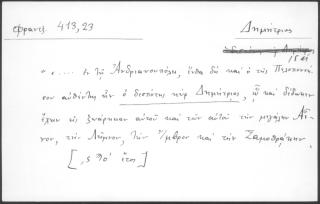 Σφραντζ. 413,23
Δημήτριος
ὁ δεσπότης κὺρ Δημήτρ.
" .... ἐν τῇ Ἀνδριανουπόλει, ἔνθα δὴ καὶ ὁ τῆς Πελοποννή-
σου αὐθέντης ἦν ὁ δεσπότης κὺρ Δημήτριος, ᾧ καὶ δέδωκεν
ἔχειν εἰς ζωάρκειαν αὐτοῦ καὶ τὸν αὐτὰ τὴν μεγάλην Αἶ-
νον, τὴν Λῆμνον, τὴν Ἴμβρον καὶ τὴν Σαμοθράκην.
[͵ϛ ϡο' ἔτος]